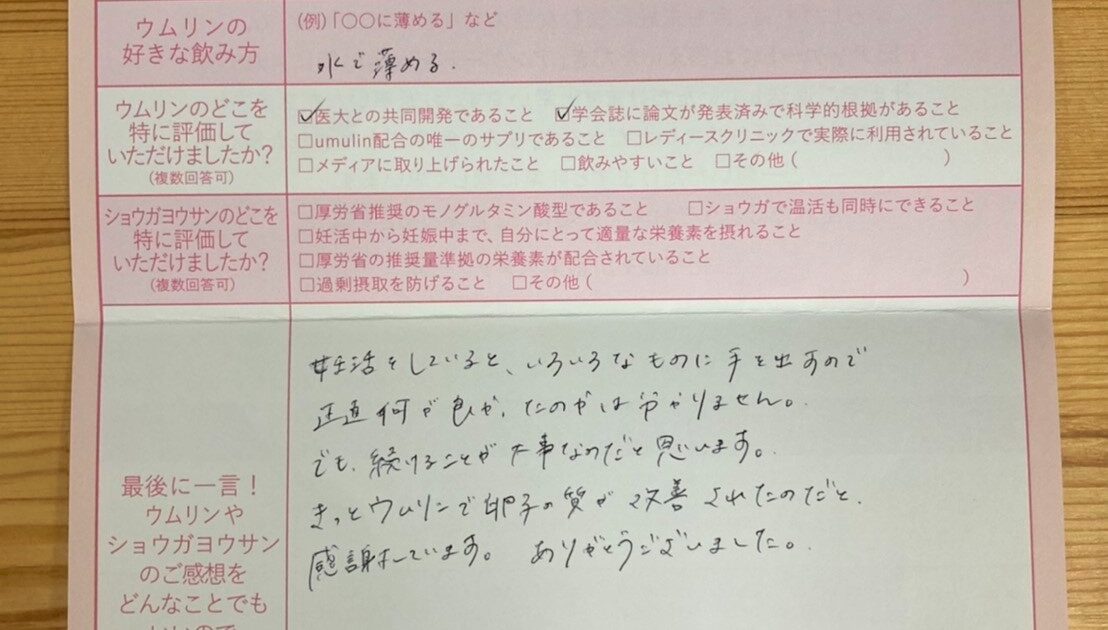 ウムリンの
好きな飲み方
(例)「〇〇に薄める」など
水で薄める.
ウムリンのどこを
特に評価して
いただけましたか?
(複数回答可)
☑医大との共同開発であること ☑学会誌に論文が発表済みで科学的根拠があること
□umulin配合の唯一のサプリであること □レディースクリニックで実際に利用されていること
□メディアに取り上げられたこと □飲みやすいこと □その他( )
ショウガヨウサンのどこを
特に評価して
いただけましたか?
(複数回答可)
□厚労省推奨のモノグルタミン酸型であること □ショウガで温活も同時にできること
□妊活中から妊娠中まで、自分にとって適量な栄養素を摂れること
□厚労省の推奨量準拠の栄養素が配合されていること
□過剰摂取を防げること □その他( )
最後に一言!
ウムリンや
ショウガヨウサン
のご感想を
どんなことでも
いいので
妊活をしていると、いろいろなものに手を出すので
正直何が良かったのかは分かりません。
でも、続けることが大事なのだと思います。
きっとウムリンで卵子の質が改善されたのだと、
感謝しています。 ありがとうございました。